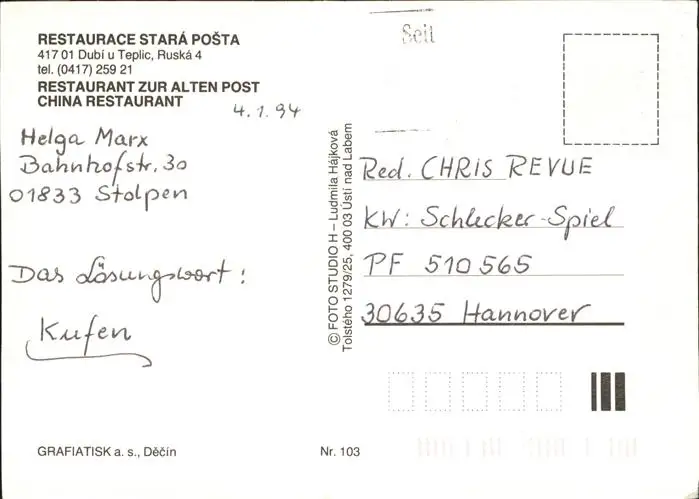 RESTAURACE STARÁ POŠTA
417 01 Dubí u Teplic, Ruská 4
tel. (0417) 259 21
RESTAURANT ZUR ALTEN POST
CHINA RESTAURANT
4.1.94
Helga Marx
Bahnhofstr. 30
01833 Stolpen
Das Lösungswort:
Kufen
GRAFIATISK a. s., Děčín
© FOTO STUDIO H – Ludmila Hájková
Tolstého 1279/25, 400 03 Ústí nad Labem
Nr. 103
Seit
Red. CHRIS REVUE
KW: Schlecker-Spiel
PF 510565
30635 Hannover